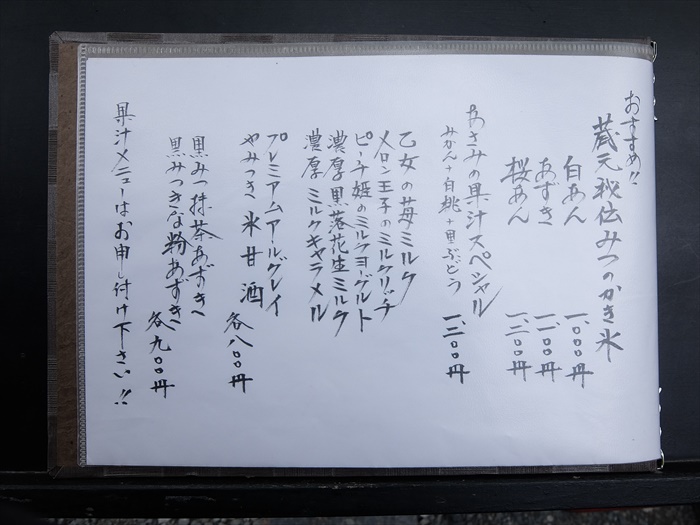 おすすめ!!
蔵元秘伝みつのかき氷
白あん 一、〇〇〇円
あずき 一、一〇〇円
桜あん 一、二〇〇円
あさみの果汁スペシャル
みかん+白桃+黒ぶどう 一、二〇〇円
乙女の苺ミルク
メロン王子のミルクリッチ
ピーチ姫のミルクヨーグルト
濃厚黒落花生ミルク
濃厚ミルクキャラメル
プレミアムアールグレイ
やみつき 米甘酒 各八〇〇円
黒みつ抹茶あずきへ
黒みつきな粉あずきへ 各九〇〇円
果汁メニューはお申し付け下さい!!